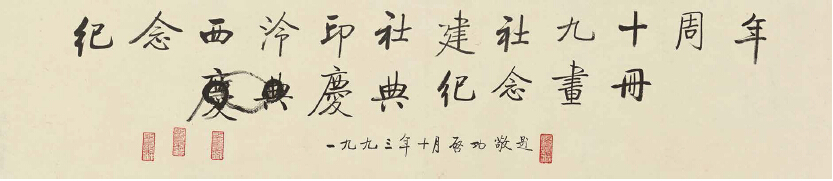 纪念西泠印社建社九十周年
慶典慶典纪念畫冊
一九九三年十月启功敬题